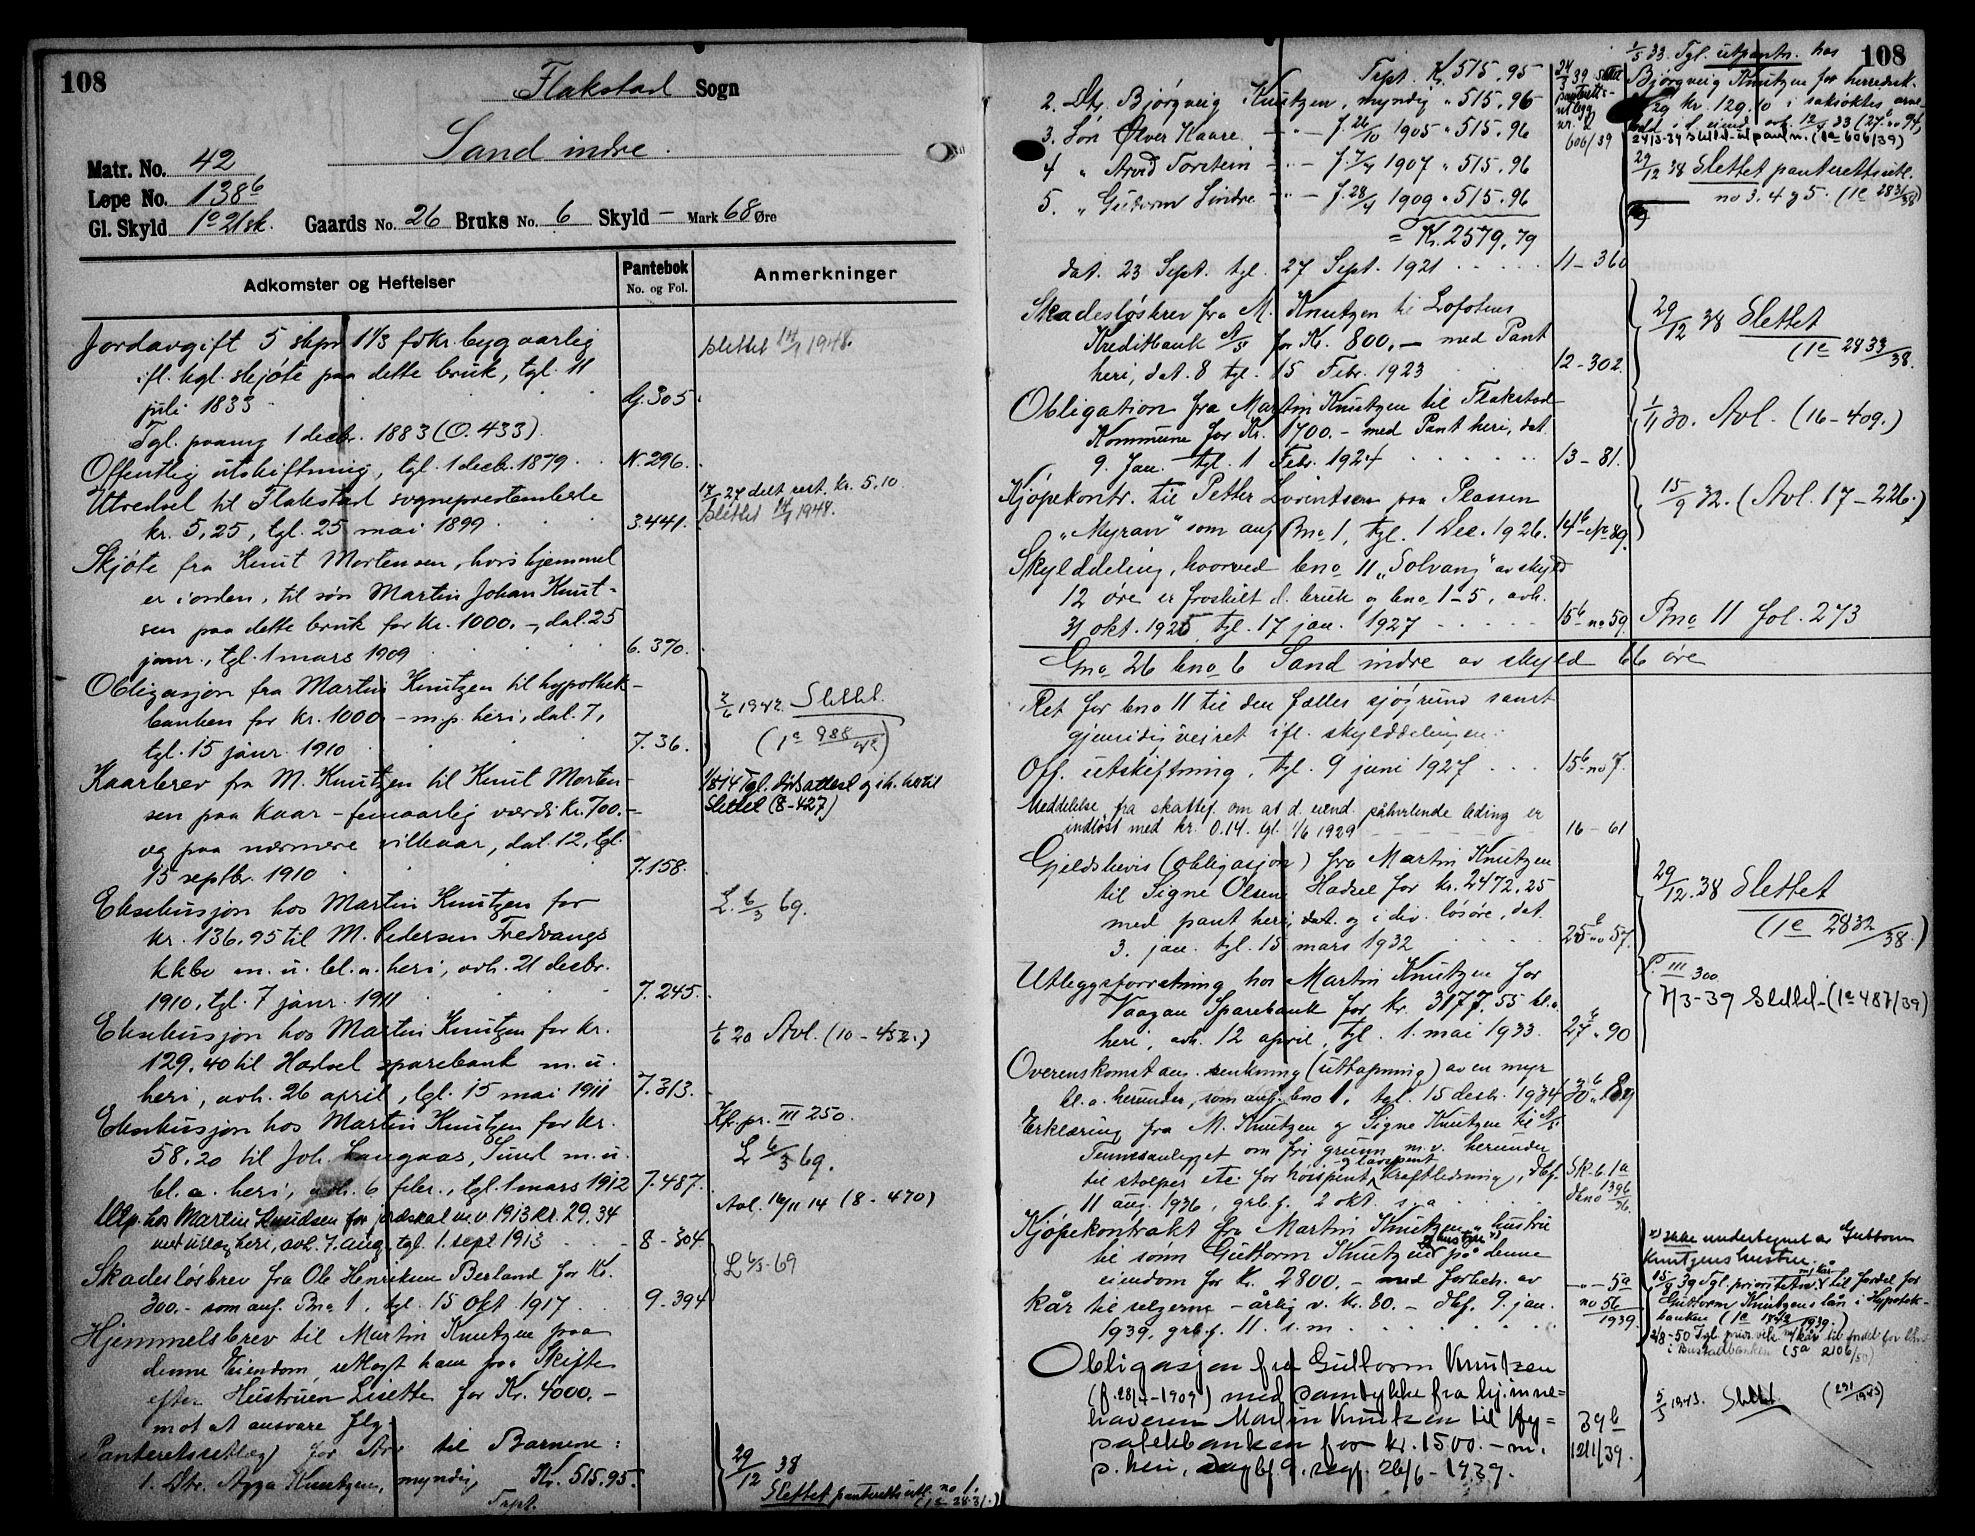 108
Flakstad Sogn
Sand indre.
Matr. No. 42
Løpe No. 138⁶
Gl. Skyld 1º 21 sk. Gaards No. 26 Bruks No. 6 Skyld — Mark 68 Øre
Adkomster og Heftelser
Pantebok
No. og Fol.
Anmerkninger
Jordavgift 5 skpr 1 1/3 fdkr. byg aarlig
ifl. kgl. skjøte paa dette bruk, tgl. 11
juli 1833 G. 305
slettet 14/1 1948.
Tgl. paany 1 decbr. 1883 (O. 433).
Offentlig utskiftning, tgl. 1 decb. 1879. N. 296.
Utredsel til Flakstad sogneprestembede
kr. 5,25, tgl. 25 mai 1899 3.441.
kr. 5.10.
slettet 14/1 1948.
Skjøte fra Knut Mortensen, hvis hjemmel
er i orden, til søn Martin Johan Knut-
sen paa dette bruk for kr. 1000.-, dat. 25
janr., tgl. 1 mars 1909 6. 370.
Obligasjon fra Martin Knutzen til hypothek-
banken for kr. 1000 - m. p. heri, dat. 7,
tgl. 15 janr. 1910 7. 36.
2/6 1942. Slettet.
(1a 988/42)
Kaarbrev fra M. Knutzen til Knut Morten-
sen paa kaar - femaarlig værdi kr. 700.-
og paa nærmere vilkaar, dat. 12, tgl.
15 septbr. 1910 7.158.
Slettet (8-427)
Eksekusjon hos Martin Knutzen for
kr. 136.95 til M. Pedersen Fredvangs
kkbo m. u. bl. a. heri, avh. 21 desbr.
1910, tgl. 7 janr. 1911 7. 245.
L. 6/3 69.
Eksekusjon hos Martin Knutzen for kr.
129.40 til Hadsel sparebank m. u.
heri, avh. 26 april, tgl. 15 mai 1911 7. 313.
1/6 20 Avl. (10-452.)
Eksekusjon hos Martin Knutzen for kr.
58.20 til Joh. Langaas, Sund m. u.
bl. a. heri, avh. 6 febr., tgl. 1 mars 1912 7. 487.
Kfr. pr. III 250.
L 6/3 69.
Utp. hos Martin Knudsen for jordskat m. v. 1913 kr. 29.34
med utlæg heri, avh. 7. aug. tgl. 1. sept 1913 8-304
Avl. 16/11 14 (8-470)
Skadesløsbrev fra Ole Henriksen Berland for Kr.
300.- som anf. Bno 1, tgl. 15 Okt. 1917 9-394
L 6/3-69
Hjemmelsbrev til Martin Knutzen paa
denne Eiendom, utlagt ham paa Skifte
efter Hustruen Lisette for Kr. 4000.-
mot at ansvare flg.
Panteretsutlæg for Arv til Barnene:
1. Dtr. Agga Knutzen, myndig Kr. 515.95.
Trpt.
29/12 38
Slettet panterettsutl. no 1.
(1a 2831.)
108
Trpt. Kr. 515.95
2. Dtr. Bjørgveig Knutzen, myndig " 515.96
3. Søn Ølver Kaare — " — f. 26/10 1905 " 515.96
4 " Arvid Torstein — " — f. 7/7 1907 " 515.96
5. " Gudorm Sindre — " — f. 28/4 1909 " 515.96
= Kr. 2579.79
dat. 23 Sept. tgl. 27 Sept. 1921 11-360
606/39
1/5 33. Tgl. utpantn. hos
Bjørgveig Knutzen for herredsk.
kr. 129.10 i saksøktes arve-
24/3-39 slettet utpantn. (1a 606/39)
29/12 38 Slettet panterettsutl.
no 3. 4 og 5. (1a 2831/38)
Skadesløsbrev fra M. Knutzen til Lofotens
Kreditbank A/S for Kr. 800.- med Pant
heri, dat. 8 tgl. 15 Febr. 1923 12-302.
29/12 38 Slettet
(1a 2833/38.
Obligation fra Martin Knutzen til Flakstad
Kommune for Kr. 1700.- med Pant heri, dat.
9. Jan. tgl. 1 Febr. 1924 13-81.
1/11 30. Avl. (16-409.)
Kjøpekontr. til Petter Lorintsen paa Plassen
"Myran" som anf. Bno 1, tgl. 1 Dec. 1926. 14b-No 89.
15/9 32. (Avl. 17-226.)
Skylddeling, hvorved bno 11 "Solvang" av skyld
12 øre er fraskilt d. bruk og bno 1-5, avh.
31 okt. 1925 tgl. 17 jan. 1927 15b no 59.
Bno 11 fol. 273
Gno 26 bno 6 Sand indre av skyld 66 øre
Ret for bno 11 til den fælles sjøgrund samt
gjensidig veiret ifl. skylddelingen.
Off. utskiftning, tgl. 9 juni 1927 15b no 7.
Meddelelse fra skattef. om at d. eiend. påhvilende leding er
indløst med kr. 0.14. tgl. 1/6 1929 16-61
Gjeldsbevis (obligasjon) fra Martin Knutzen
til Signe Olsen Hadsel for kr. 2472.25
med pant heri, dat. og i div. løsøre, dat.
3. jan. tgl. 15 mars 1932 25b no 57.
29/12. 38 Slettet
(1a 2832/38.)
Utleggsforretning hos Martin Knutzen for
Vaagan Sparebank for kr. 3177.55 bl. a.
heri, avh. 12 april, tgl. 1. mai 1933. 27b " 90
P. III 300
7/3-39 Slettet-(1a 487/39)
Overenskomst ang. senkning (uttapning) av en myr
bl. a. herunder, som anf. bno 1. tgl. 15 desbr. 1934 30b
Erklæring fra M. Knutzen og Signe Knutzen til A/S
om fri grunn m. v. herunder
til stolper etc. for høispent og lavspent kraftledning, dbf.
11 aug. 1936, grb. f. 2 okt. s. a.
Sk. b. 1a
dkno 1396/36.
Kjøpekontrakt fra Martin Knutzen og hustru
til sønn Guttorm Knutzen og hustru x) på denne
eiendom for Kr. 2800.- med forbeh. av
kår til selgerne - årlig v. kr. 80.- dbf. 9. jan.
1939, grb. f. 11. s. m.
5a
no 56
1939.
x) ikke undertegnet av Guttorm
Knutzens hustru
15/9 39 Tgl. prioritetsv. m/kår til fordel for
Guttorm Knutzens lån i Hypotek-
banken (1a 1842/1939.)
2/8-50 Tgl. prior. vik. m/kår til fordel for lån
i Bustadbanken (5a 2106/50)
Obligasjon fra Guttorm Knutzen
(f. 28/4-1909) med samtykke fra hjemme-
haveren Martin Knutzen til Hy=
potekbanken for kr. 1500.- m.
p. heri, dagbf. 9, regf. 26/6-1939.
39b
1211/39.
5/3 1943. Slettet (291/1943)